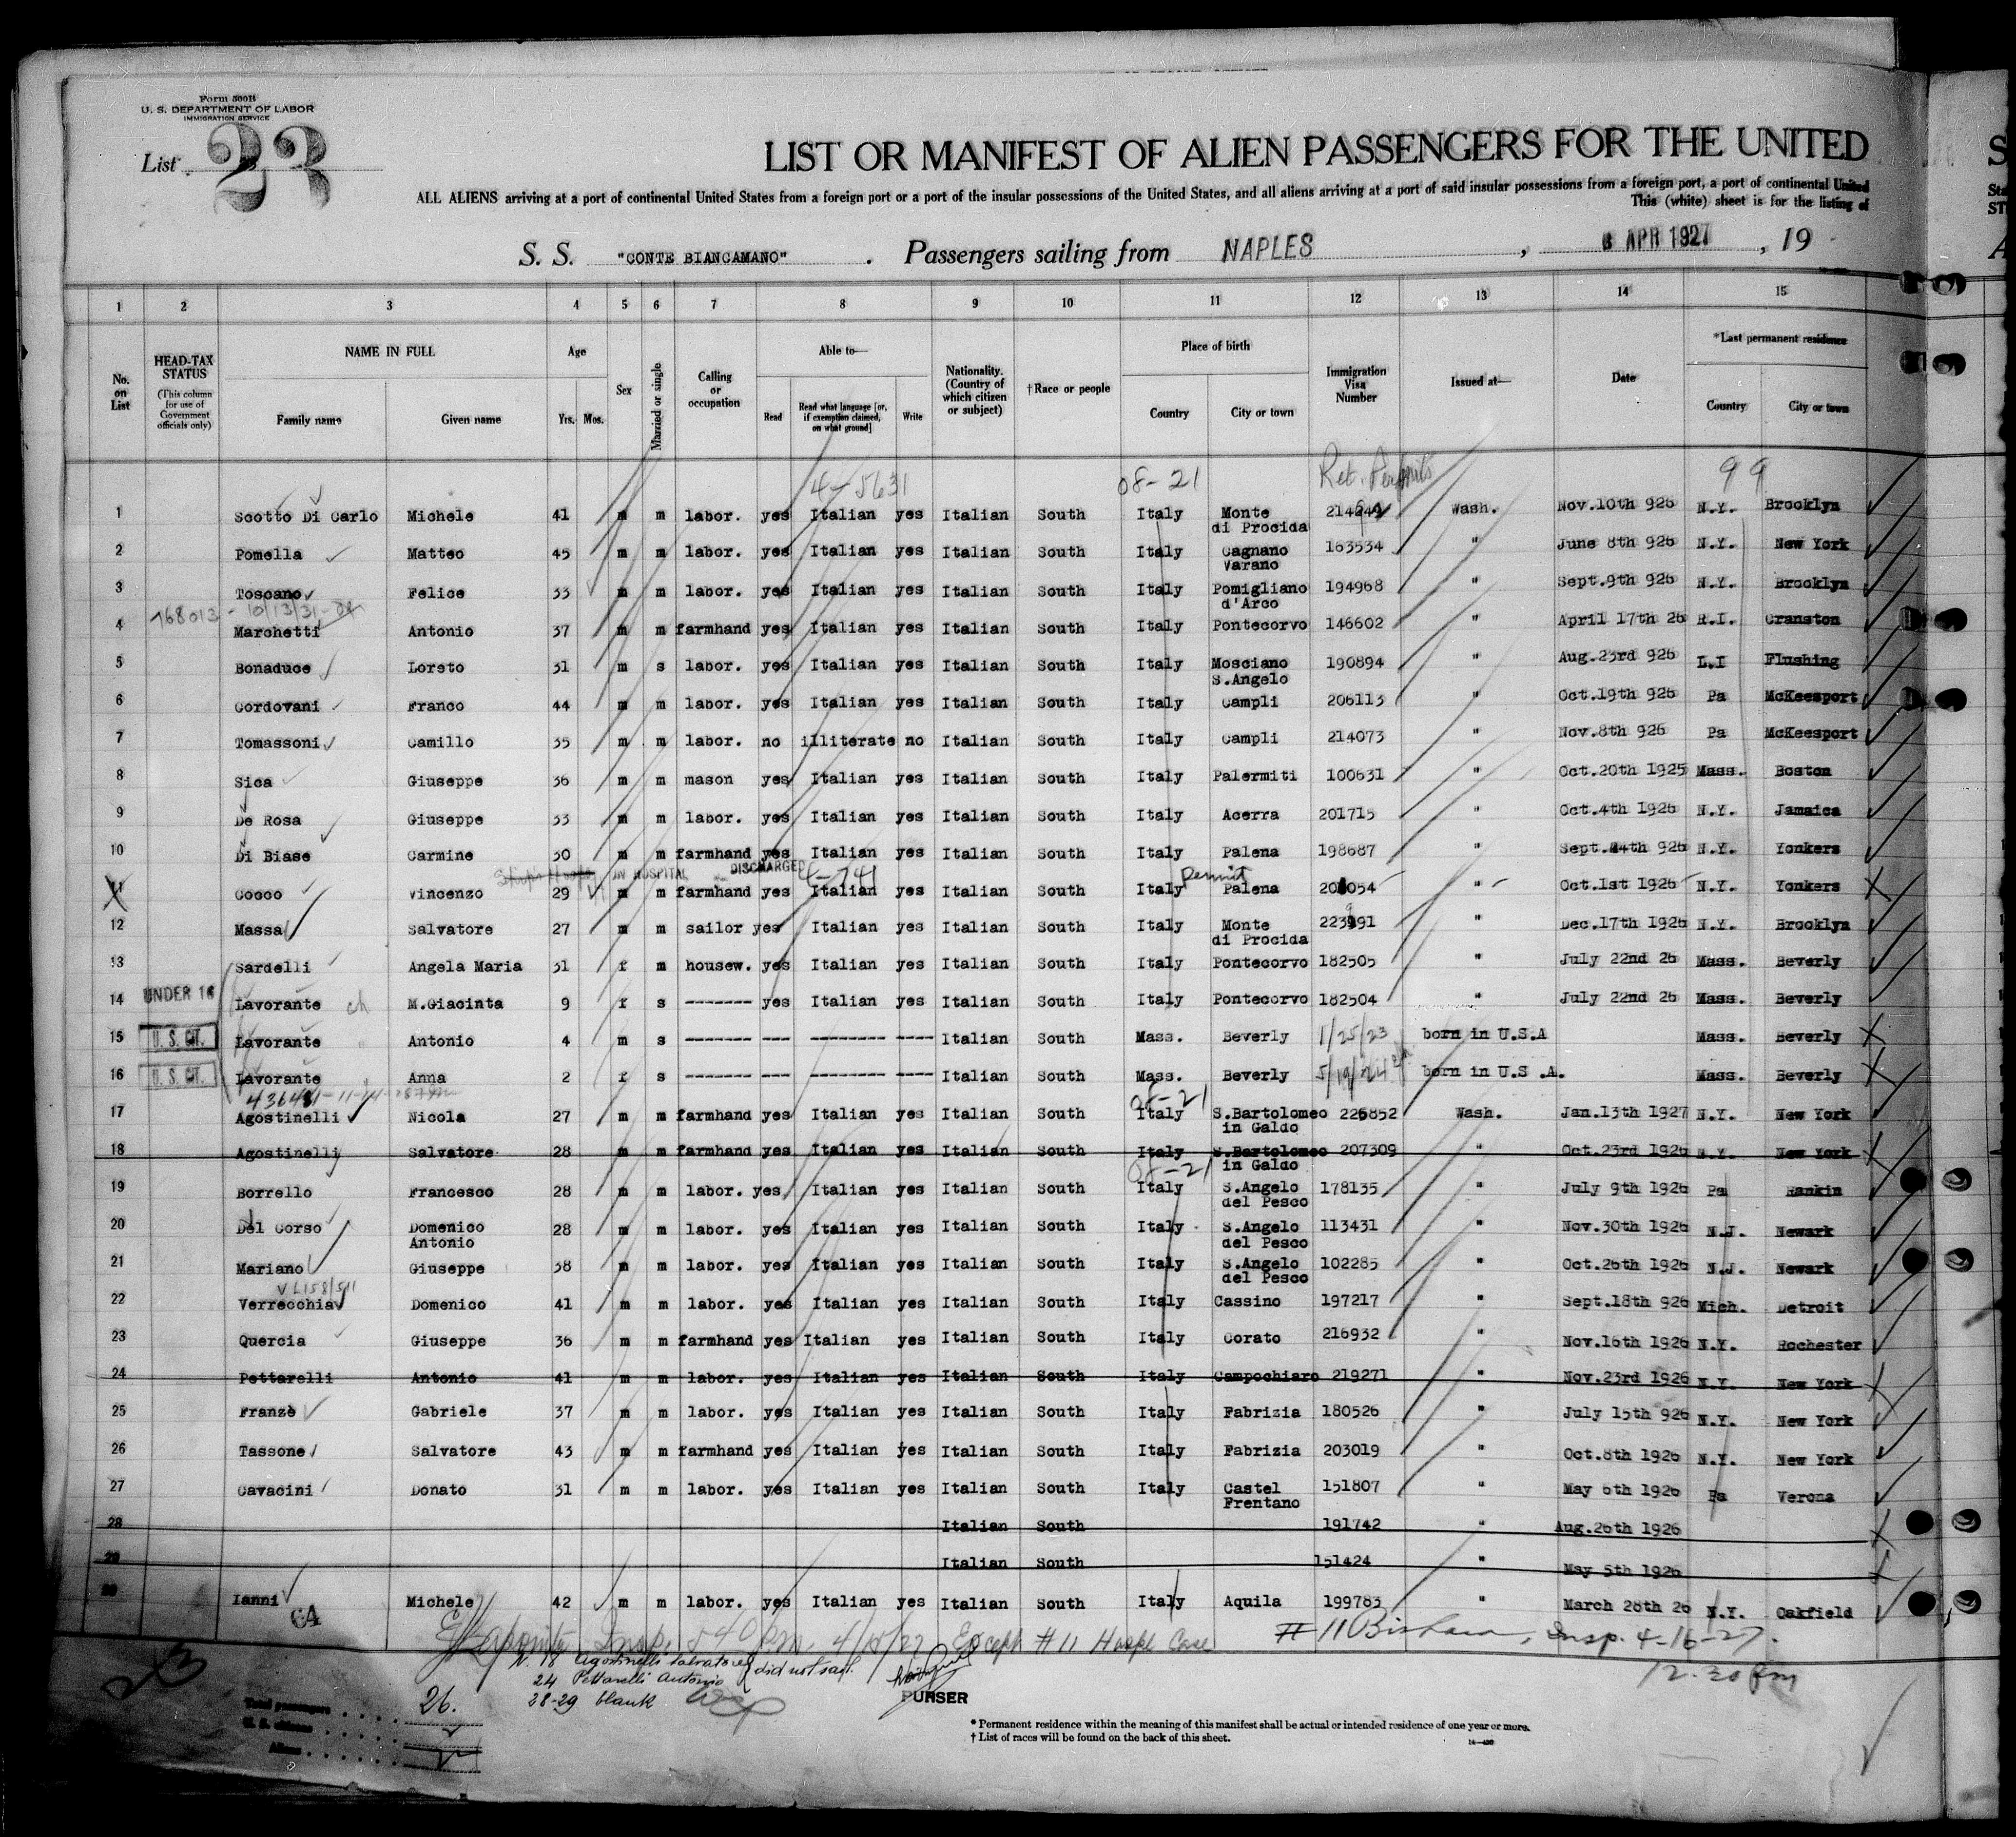 Form 500B
U. S. DEPARTMENT OF LABOR
IMMIGRATION SERVICE
List 23
LIST OR MANIFEST OF ALIEN PASSENGERS FOR THE UNITED
ALL ALIENS arriving at a port of continental United States from a foreign port or a port of the insular possessions of the United States, and all aliens arriving at a port of said insular possessions from a foreign port, a port of continental United
This (white) sheet is for the listing of
S. S. "CONTE BIANCAMANO" . Passengers sailing from NAPLES , 6 APR 1927 , 19
1 2 3 4 5 6 7 8 9 10 11 12 13 14 15
No. on List
HEAD-TAX STATUS
(This column for use of Government officials only)
NAME IN FULL
Family name Given name
Age
Yrs. Mos.
Sex
Married or single
Calling or occupation
Able to—
Read
Read what language [or, if exemption claimed, on what ground]
Write
Nationality. (Country of which citizen or subject)
†Race or people
Place of birth
Country City or town
Immigration Visa Number
Issued at—
Date
*Last permanent residence
Country City or town
4-5631 08-21 Ret. Permits 99
1 Scotto Di Carlo Michele 41 m m labor. yes Italian yes Italian South Italy Monte di Procida Wash. Nov.10th 926 N.Y. Brooklyn
2 Pomella Matteo 45 m m labor. yes Italian yes Italian South Italy Cagnano Varano 163534 " June 8th 926 N.Y. New York
3 Toscano Felice 33 m m labor. yes Italian yes Italian South Italy Pomigliano d'Arco 194968 " Sept.9th 926 N.Y. Brooklyn
768013 - 10/13/31
4 Marchetti Antonio 37 m m farmhand yes Italian yes Italian South Italy Pontecorvo 146602 " April 17th 26 R.I. Cranston
5 Bonaduce Loreto 31 m s labor. yes Italian yes Italian South Italy Mosciano S.Angelo 190894 " Aug.23rd 926 L.I Flushing
6 Cordovani Franco 44 m m labor. yes Italian yes Italian South Italy Campli 206113 " Oct.19th 926 Pa McKeesport
7 Tomassoni Camillo 35 m m labor. no illiterate no Italian South Italy Campli 214073 " Nov.8th 926 Pa McKeesport
8 Sica Giuseppe 36 m m mason yes Italian yes Italian South Italy Palermiti 100631 " Oct.20th 1925 Mass. Boston
9 De Rosa Giuseppe 33 m m labor. yes Italian yes Italian South Italy Acerra 201715 " Oct.4th 1926 N.Y. Jamaica
10 Di Biase Carmine 30 m m farmhand yes Italian yes Italian South Italy Palena 198687 " Sept.24th 926 N.Y. Yonkers
IN HOSPITAL DISCHARGED 4-741 Permit
11 Cocco Vincenzo 29 m m farmhand yes Italian yes Italian South Italy Palena " Oct.1st 1926 N.Y. Yonkers
12 Massa Salvatore 27 m m sailor yes Italian yes Italian South Italy Monte di Procida 223991 " Dec.17th 1926 N.Y. Brooklyn
13 Sardelli Angela Maria 31 f m housew. yes Italian yes Italian South Italy Pontecorvo 182505 " July 22nd 26 Mass. Beverly
14 UNDER 16 Lavorante ch M.Giacinta 9 f s ------- yes Italian yes Italian South Italy Pontecorvo 182504 " July 22nd 26 Mass. Beverly
15 U. S. CIT. Lavorante Antonio 4 m s ------- --- -------- ---- Italian South Mass. Beverly 1/25/23 born in U.S.A Mass. Beverly
16 U. S. CIT. Lavorante Anna 2 f s ------- --- -------- ---- Italian South Mass. Beverly 5/19/24 born in U.S .A. Mass. Beverly
08-21
17 Agostinelli Nicola 27 m m farmhand yes Italian yes Italian South Italy S.Bartolomeo in Galdo 226852 Wash. Jan.13th 1927 N.Y. New York
18 Agostinelli Salvatore 28 m m farmhand yes Italian yes Italian South Italy S.Bartolomeo in Galdo 207309 " Oct.23rd 1926 N.Y. New York
08-21
19 Borrello Francesco 28 m m labor. yes Italian yes Italian South Italy S.Angelo del Pesco 178135 " July 9th 1926 Pa Rankin
20 Del Corso Domenico Antonio 28 m m labor. yes Italian yes Italian South Italy S.Angelo del Pesco 113431 " Nov.30th 1926 N.J. Newark
21 Mariano Giuseppe 38 m m labor. yes Italian yes Italian South Italy S.Angelo del Pesco 102285 " Oct.26th 1926 N.J. Newark
22 Verrecchia Domenico 41 m m labor. yes Italian yes Italian South Italy Cassino 197217 " Sept.18th 926 Mich. Detroit
23 Quercia Giuseppe 36 m m farmhand yes Italian yes Italian South Italy Corato 216932 " Nov.16th 1926 N.Y. Rochester
24 Pettarelli Antonio 41 m m labor. yes Italian yes Italian South Italy Campochiaro 219271 " Nov.23rd 1926 N.Y. New York
25 Franzè Gabriele 37 m m labor. yes Italian yes Italian South Italy Fabrizia 180526 " July 15th 926 N.Y. New York
26 Tassone Salvatore 43 m m farmhand yes Italian yes Italian South Italy Fabrizia 203019 " Oct.8th 1926 N.Y. New York
27 Cavacini Donato 31 m m labor. yes Italian yes Italian South Italy Castel Frentano 151807 " May 6th 1926 Pa Verona
28 Italian South 191742 " Aug.26th 1926
29 Italian South 151424 " May 5th 1926
30 Ianni Michele 42 m m labor. yes Italian yes Italian South Italy Aquila 199783 " March 26th 26 N.Y. Oakfield
Insp. 540 pm 4/15/27 Except #11 Hospl Case # 11 Insp. 4-16-27.
12.30 pm
23
N. 18 Agostinelli Salvatore did not sail.
24 Pettarelli Antonio
28-29 blank
PURSER
Total passengers . . . . 26.
U. S. citizens . . . .
Aliens . . . . . .
* Permanent residence within the meaning of this manifest shall be actual or intended residence of one year or more.
† List of races will be found on the back of this sheet.